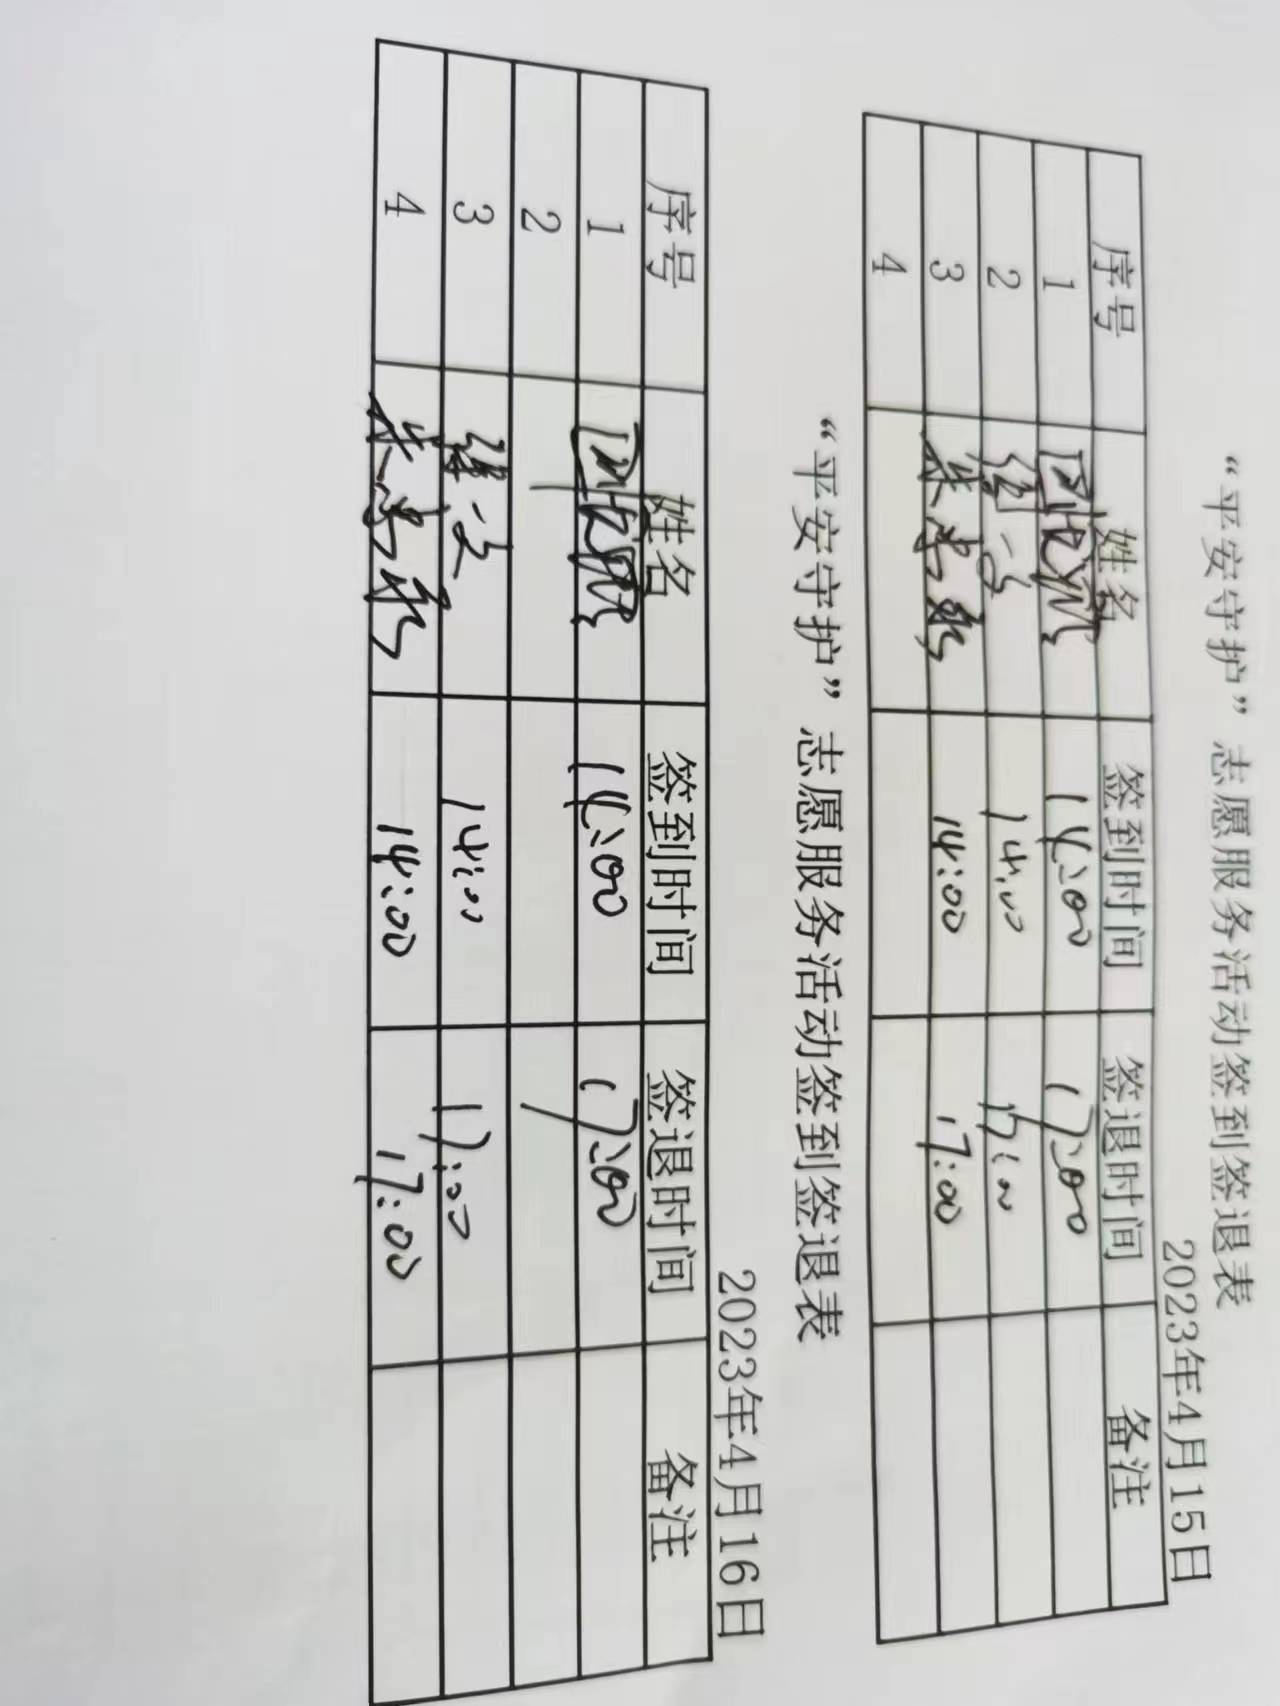 “平安守护”志愿服务活动签到签退表
2023年4月15日
序号 姓名 签到时间 签退时间 备注
1 14:00 17:00
2 14:00 17:00
3 14:00 17:00
4
“平安守护”志愿服务活动签到签退表
2023年4月16日
序号 姓名 签到时间 签退时间 备注
1 14:00 17:00
2
3 14:00 17:00
4 14:00 17:00